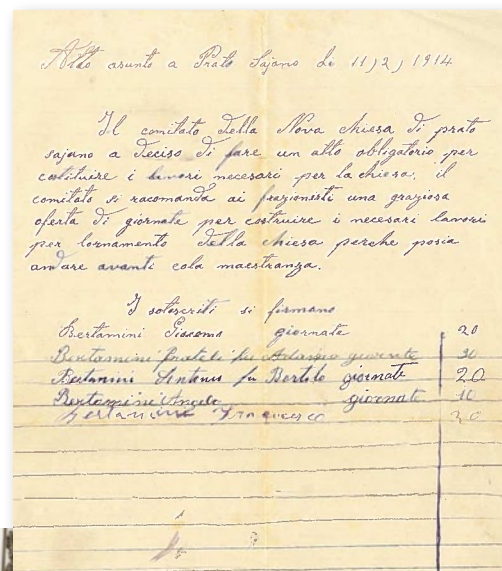 Atto asunto a Prato Sajano li 11/2/1914
Il comitato della Nova chiesa di prato
sajano a deciso di fare un atto obligatorio per
costituire i lavori necesari per la chiesa, il
comitato si racomanda ai frazionisti una graziosa
oferta di giornate per costruire i necesari lavori
per lornamento della chiesa perche posia
andare avanti cola maestranza.
I sotoscriti si firmano
Bertamini Giacomo giornate 20
Bertamini frateli fu giornate
Bertamini Antonio fu Bortolo giornate 20
Bertamini Angelo giornate 10
Bertamini Francesco 20